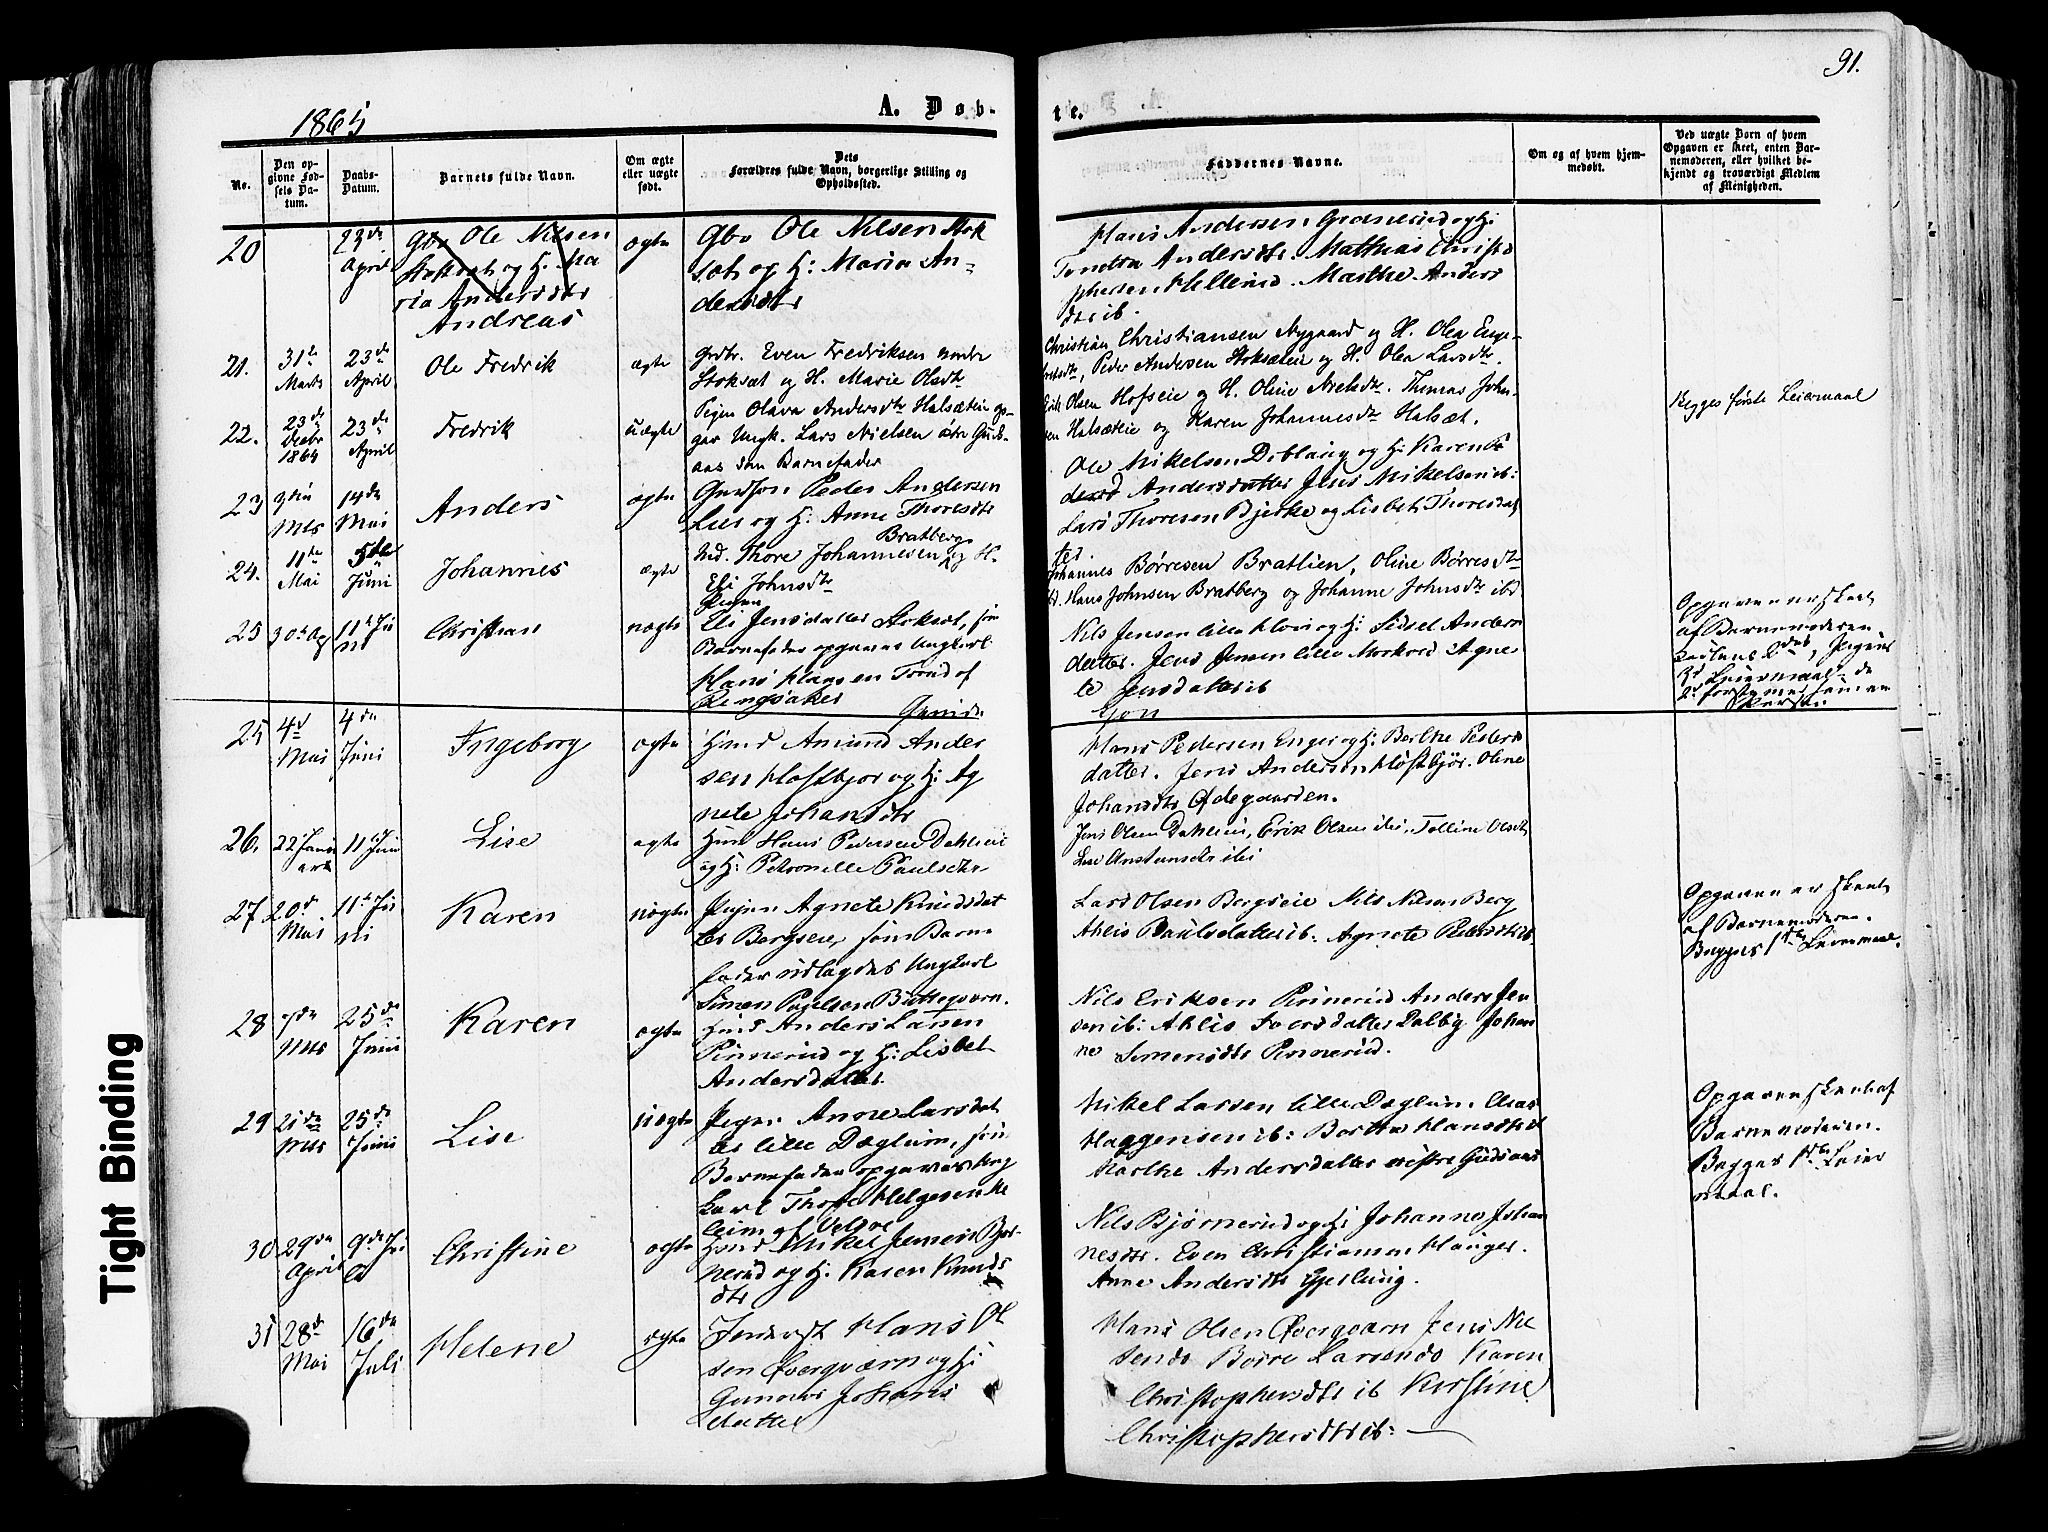 91.
1865
A. Døb-
te.
No.
Den op-
givne Fød-
sels Da-
tum.
Daabs-
Datum.
Barnets fulde Navn.
Om ægte
eller uægte
født.
Dets
Forældres fulde Navn, borgerlige Stilling og
Opholdssted.
Faddernes Navne.
Om og af hvem hjem-
medøbt.
Ved uægte Barn af hvem
Opgaven er skeet, enten Bar-
nemoderen, eller hvilket be-
kjendt og troværdigt Medlem
af Menigheden.
20
23de
April
Gbr Ole Nilsen
Stoksæt og H: Ma
ria Andersdtr
Andreas
ægte
Gbr Ole Nilsen Stok
sæt og H: Maria An-
dersdtr
Hans Andersen Granerud og H:
Andersdtr. Mathias Christo
phersen Hellerud. Marthe Anders
dtr ib.
21.
31te
Marts
23de
April
Ole Fredrik
ægte
Grdbr. Even Fredriksen nordre
Stoksæt og H. Marie Olsdtr
Christian Christiansen Nygaard og H. Olea Enge-
bretsdtr, Peder Andersen Stoksæteie og H. Olea Larsdtr
22.
23de
Decbr
1864
23de
April
Fredrik
uægte
Pigen Olava Andersdtr Halsæteie op-
gav Ungk. Lars Nielsen østre Guds-
aas som Barnefader
Erik Olsen Hofseie og H. Oline Axelsdtr. Thomas Johan-
sen Halsæteie og Karen Johannesdtr Halsæt.
Begges første Leiermaal
23
3die
Mts
14de
Mai
Anders
ægte
Grdson Peder Andersen
Lier og H: Anne Thoresdtr
Ole Mikelsen Doblaug og H: Karen
Andersdatter Jens Mikelsen ib:
Lars Thoresen Bjerke og Lisbet Thoresdat
ter.
24.
11te
Mai
5te
Juni
Johannes
ægte
Bratberg
Ind. Thore Johannesen og H.
Eli Johnsdtr
Johannes Børresen Bratlien, Oline Børresdtr
ib. Hans Johnsen Bratberg og Johanne Johnsdtr ibd
25
30te Ap
11te Ju
ni
Christian
uægte
Pigen
Eli Jensdatter Stoksæt, som
Barnefader opgaves Ungkarl
Hans Hagen Trond af
Ringsaker
Nils Jensen lille Kloin og H: Sidsel Anders
datter. Jens Jensen lille Morkved Agne
te Jensdatter ib
Opgaven er skeet
af Barnemoderen
Karlens 2det, Pigens
3d Leiermaal de
2de første med samme
Person.
25
4d
Mai
4de
Juni
Ingeborg
ægte
Hmd Amund Ander
sen Høstbjør og H: Ag
nete Johansdtr
Hans Pedersen Enger og H: Berthe Peders
datter. Jens Andersen Høstbjør. Oline
Johansdtr Ødegaarden.
26.
22 Janu
ar
11te Juni
Lise
ægte
Hmd Hans Pedersen Dahleie
og H: Petronelle Paulsdtr
Jens Olsen Dahleie, Erik Olsen ibi, Olsdtr
Lise ibi
27
20d
Mai
11te Ju
ni
Karen
uægte
Pigen Agnete Knudsdat
ter Bergseie, som Barne
fader udlagdes Ungkarl
Simen Butteqvern.
Lars Olsen Bergseie Nils Nilsen Berg
Ahlis Paulsdatter ib: Agnete Pedersdtr ib
Opgaven er skeet
af Barnemoderen.
Begges 1ste Leiermaal.
28
7de
Mts
25de
Juni
Karen
ægte
Hmd Anders Larsen
Pinnerud og H: Lisbet
Andersdatter.
Nils Eriksen Pinnerud Anders Jen
sen ib: Ahlis Iversdatter Dalby Johan
ne Simensdtr Pinnerud.
29
25de
Mts
25de
Juni
Lise
uægte
Pigen Anne Larsdat
ter lille Døglum, som
Barnefader opgaves Ung
karl Thore Helgesen Ke
leim af Veldre
Mikel Larsen lille Døglum. Claus
Haggensen ib: Berthe Hansdtr ib
Marthe Andersdatter vestre Gudsaas
Opgaven skeet af
Barnemoderen.
Begges 1ste Leier
maal.
30
29de
April
9de Ju
li
Christine
ægte
Hmd Mikel Jensen Bjør
nerud og H: Karen Knuds
dtr
Nils Bjørnerud og H: Johanne Johan
nesdtr. Even Christiansen Hauger.
Anne Andersdtr Gjesling.
31
28d
Mai
16de
Juli
Helene
ægte
Inderst Hans Ol
sen Øverqværn og H:
Gunner Johans
datter
Hans Olsen Øverqværn Jens Nil
sen ds Børre Larsen ds Karen
Christophersdtr ib Kirstine
Christophersdtr ib:
Tight Binding